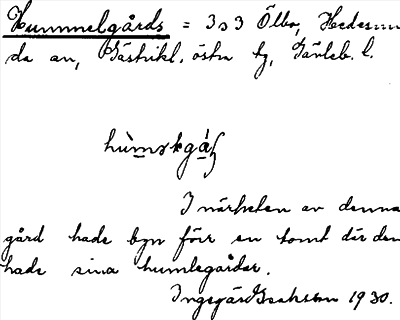 Hummelgårds = 3⁰3 Ölbo, Hedesun
da sn, Gästrikl. östra tg, Gävleb. l.
I närheten av denna
gård hade byn förr en tomt där den
hade sina humlegårdar.
Ingegärd Isaksson 1930.